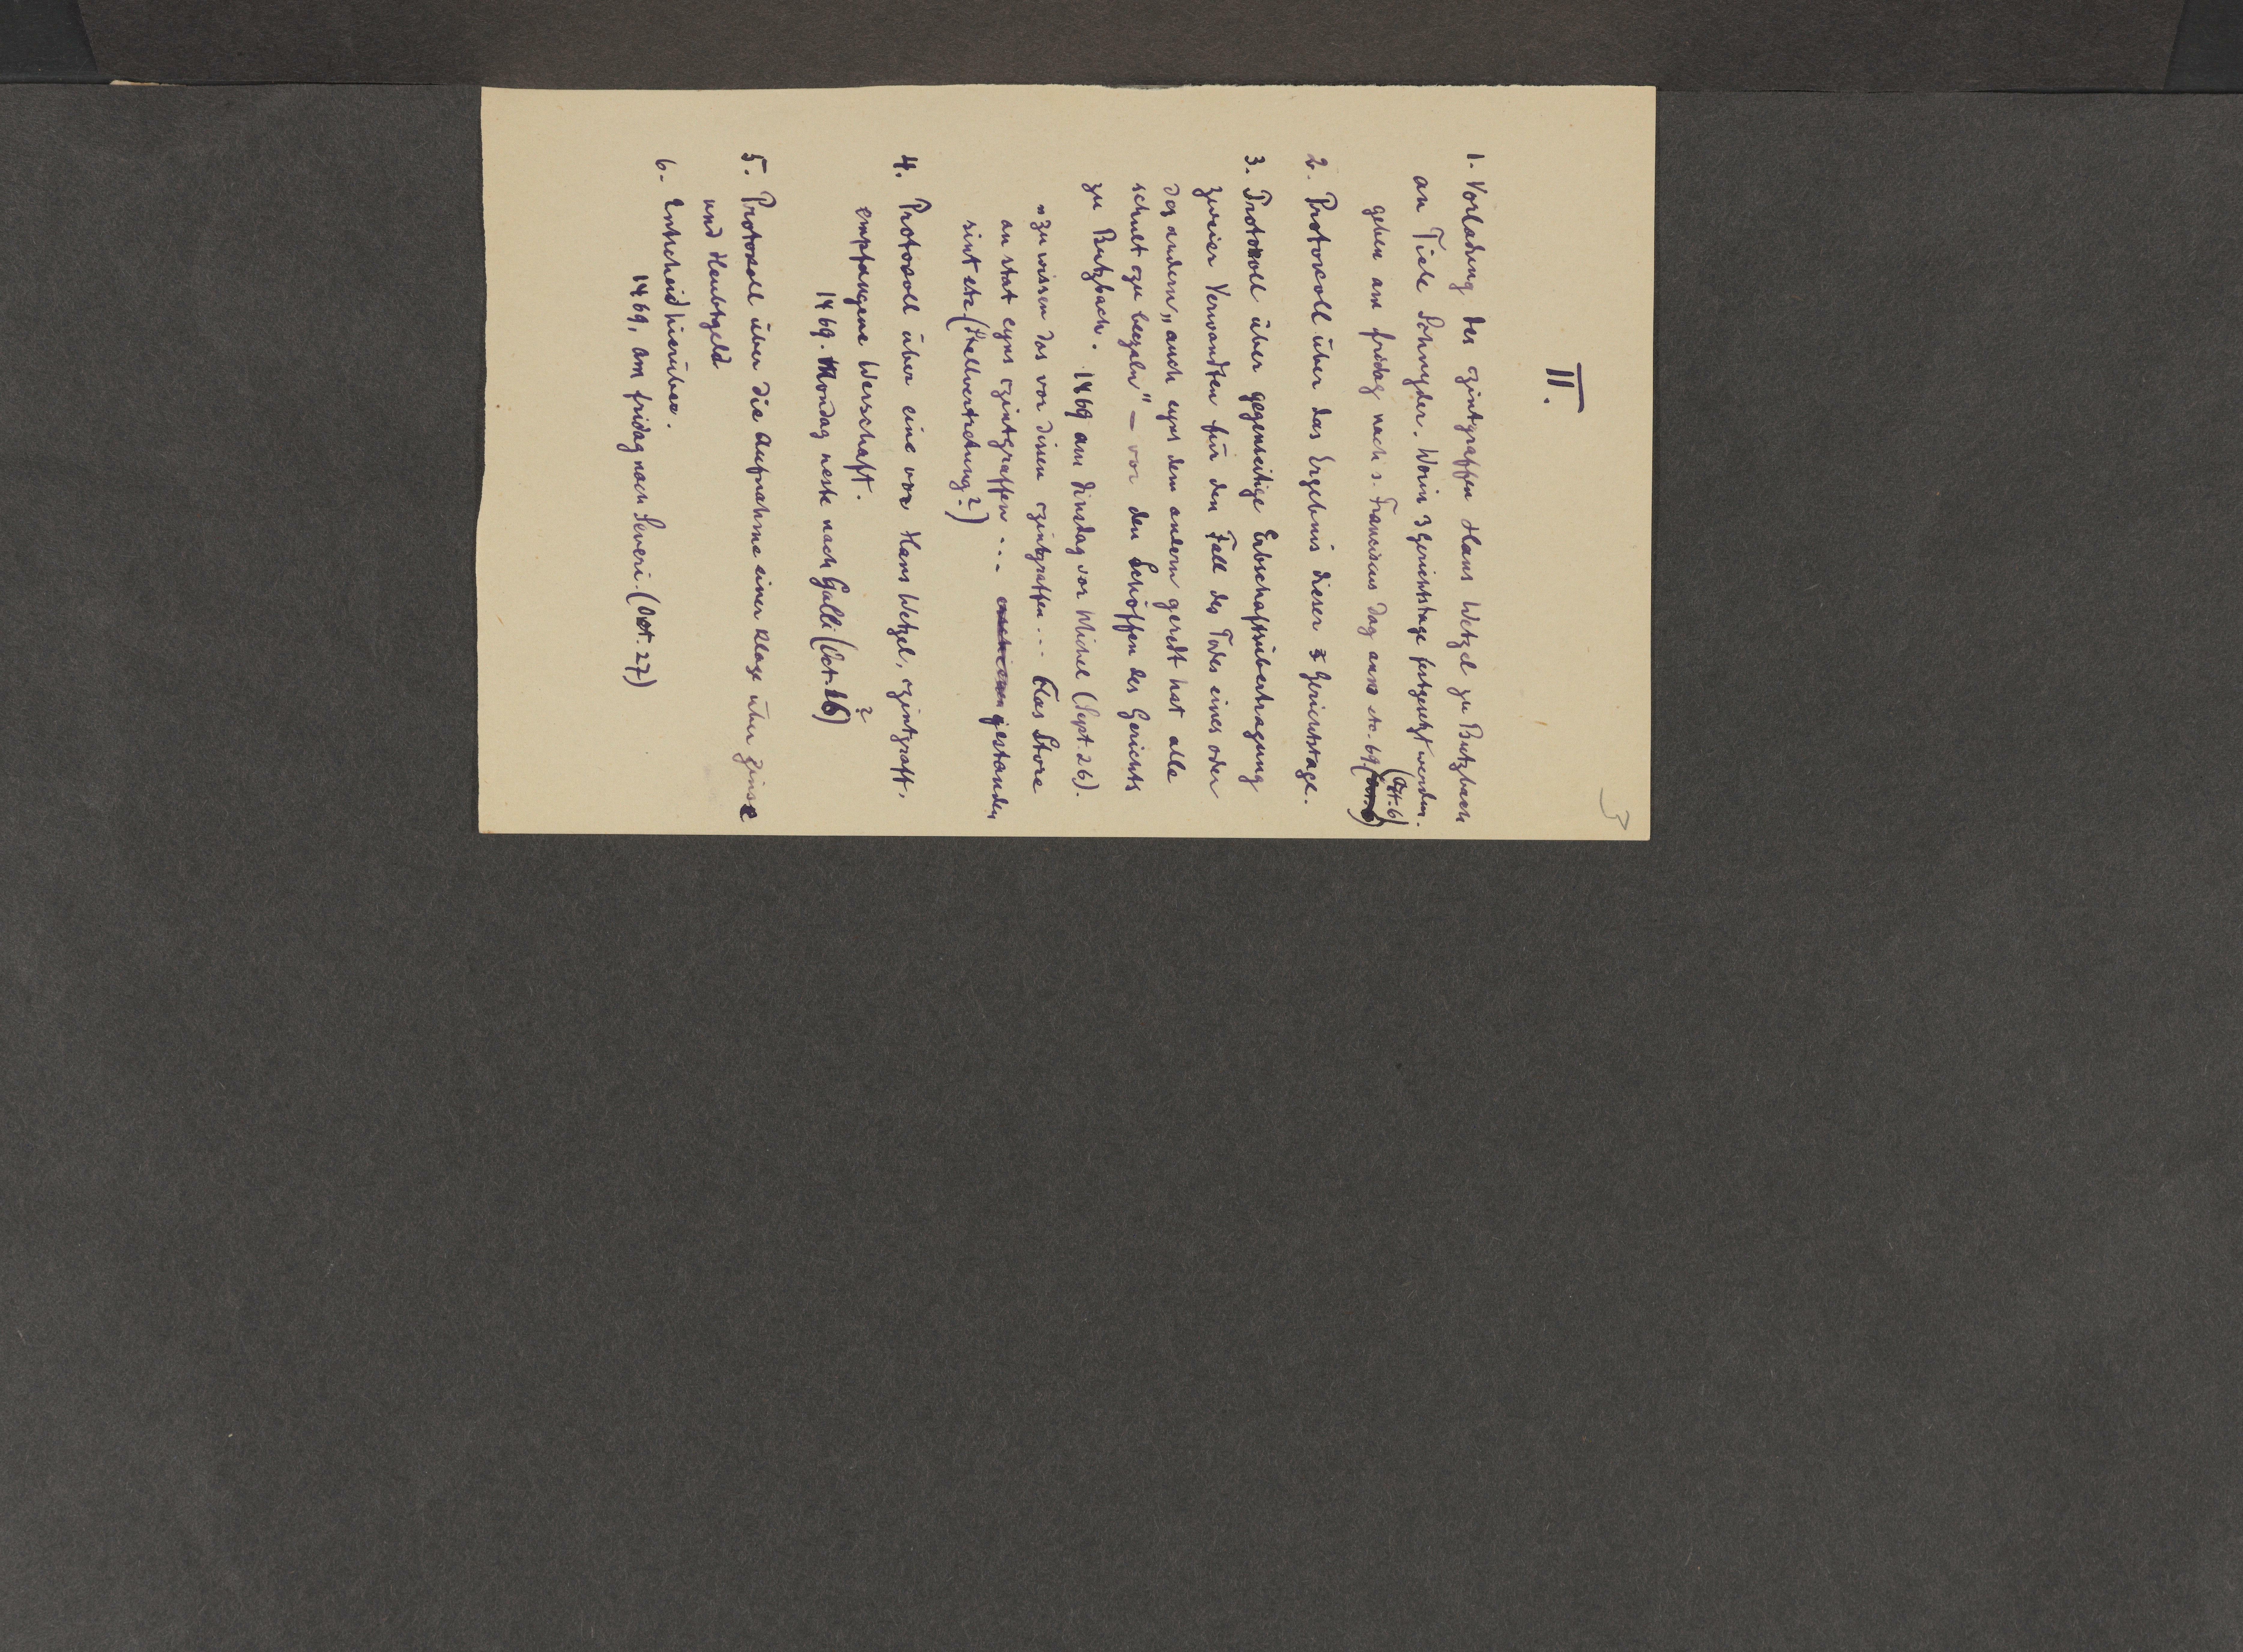 3
II.
1. Vorladung des zintgraffen Hans Wetzel zu Butzbach
an Tiele Schnyder. Worin 3 Gerichtstage festgesetzt werden.
geben am fridag nach s. Franciscus dag anno etc. 69 (Oct. 6)
2. Protokoll über das Ergebnis dieser 3 Gerichtstage.
3. Protokoll über gegenseitige Erbschaftsübertragung
zweier Verwandten für den Fall des Todes eines oder
des andern, „auch eyns dem andern geredt hat alle
schult czu beczaln" – vor den Schöffen des Gerichts
zu Butzbach. 1469 am dinsdag vor Michel (Sept. 26).
„zu wissen das vor dissen czintgraffen ... Clas Store
an stat eyns czintgraffen ... gestanden
sint etc. (Stellvertretung?)
4. Protokoll über eine vor Hans Wetzel, czintgraff,
empfangene Werschaft.
1469. Mondag neste nach Galli (Oct. 16?)
5. Protokoll über die Aufnahme einer Klage über Zinse
und Heubtgeld
6. Entscheid hierüber.
1469, am fridag nach Severi. (Oct. 27)